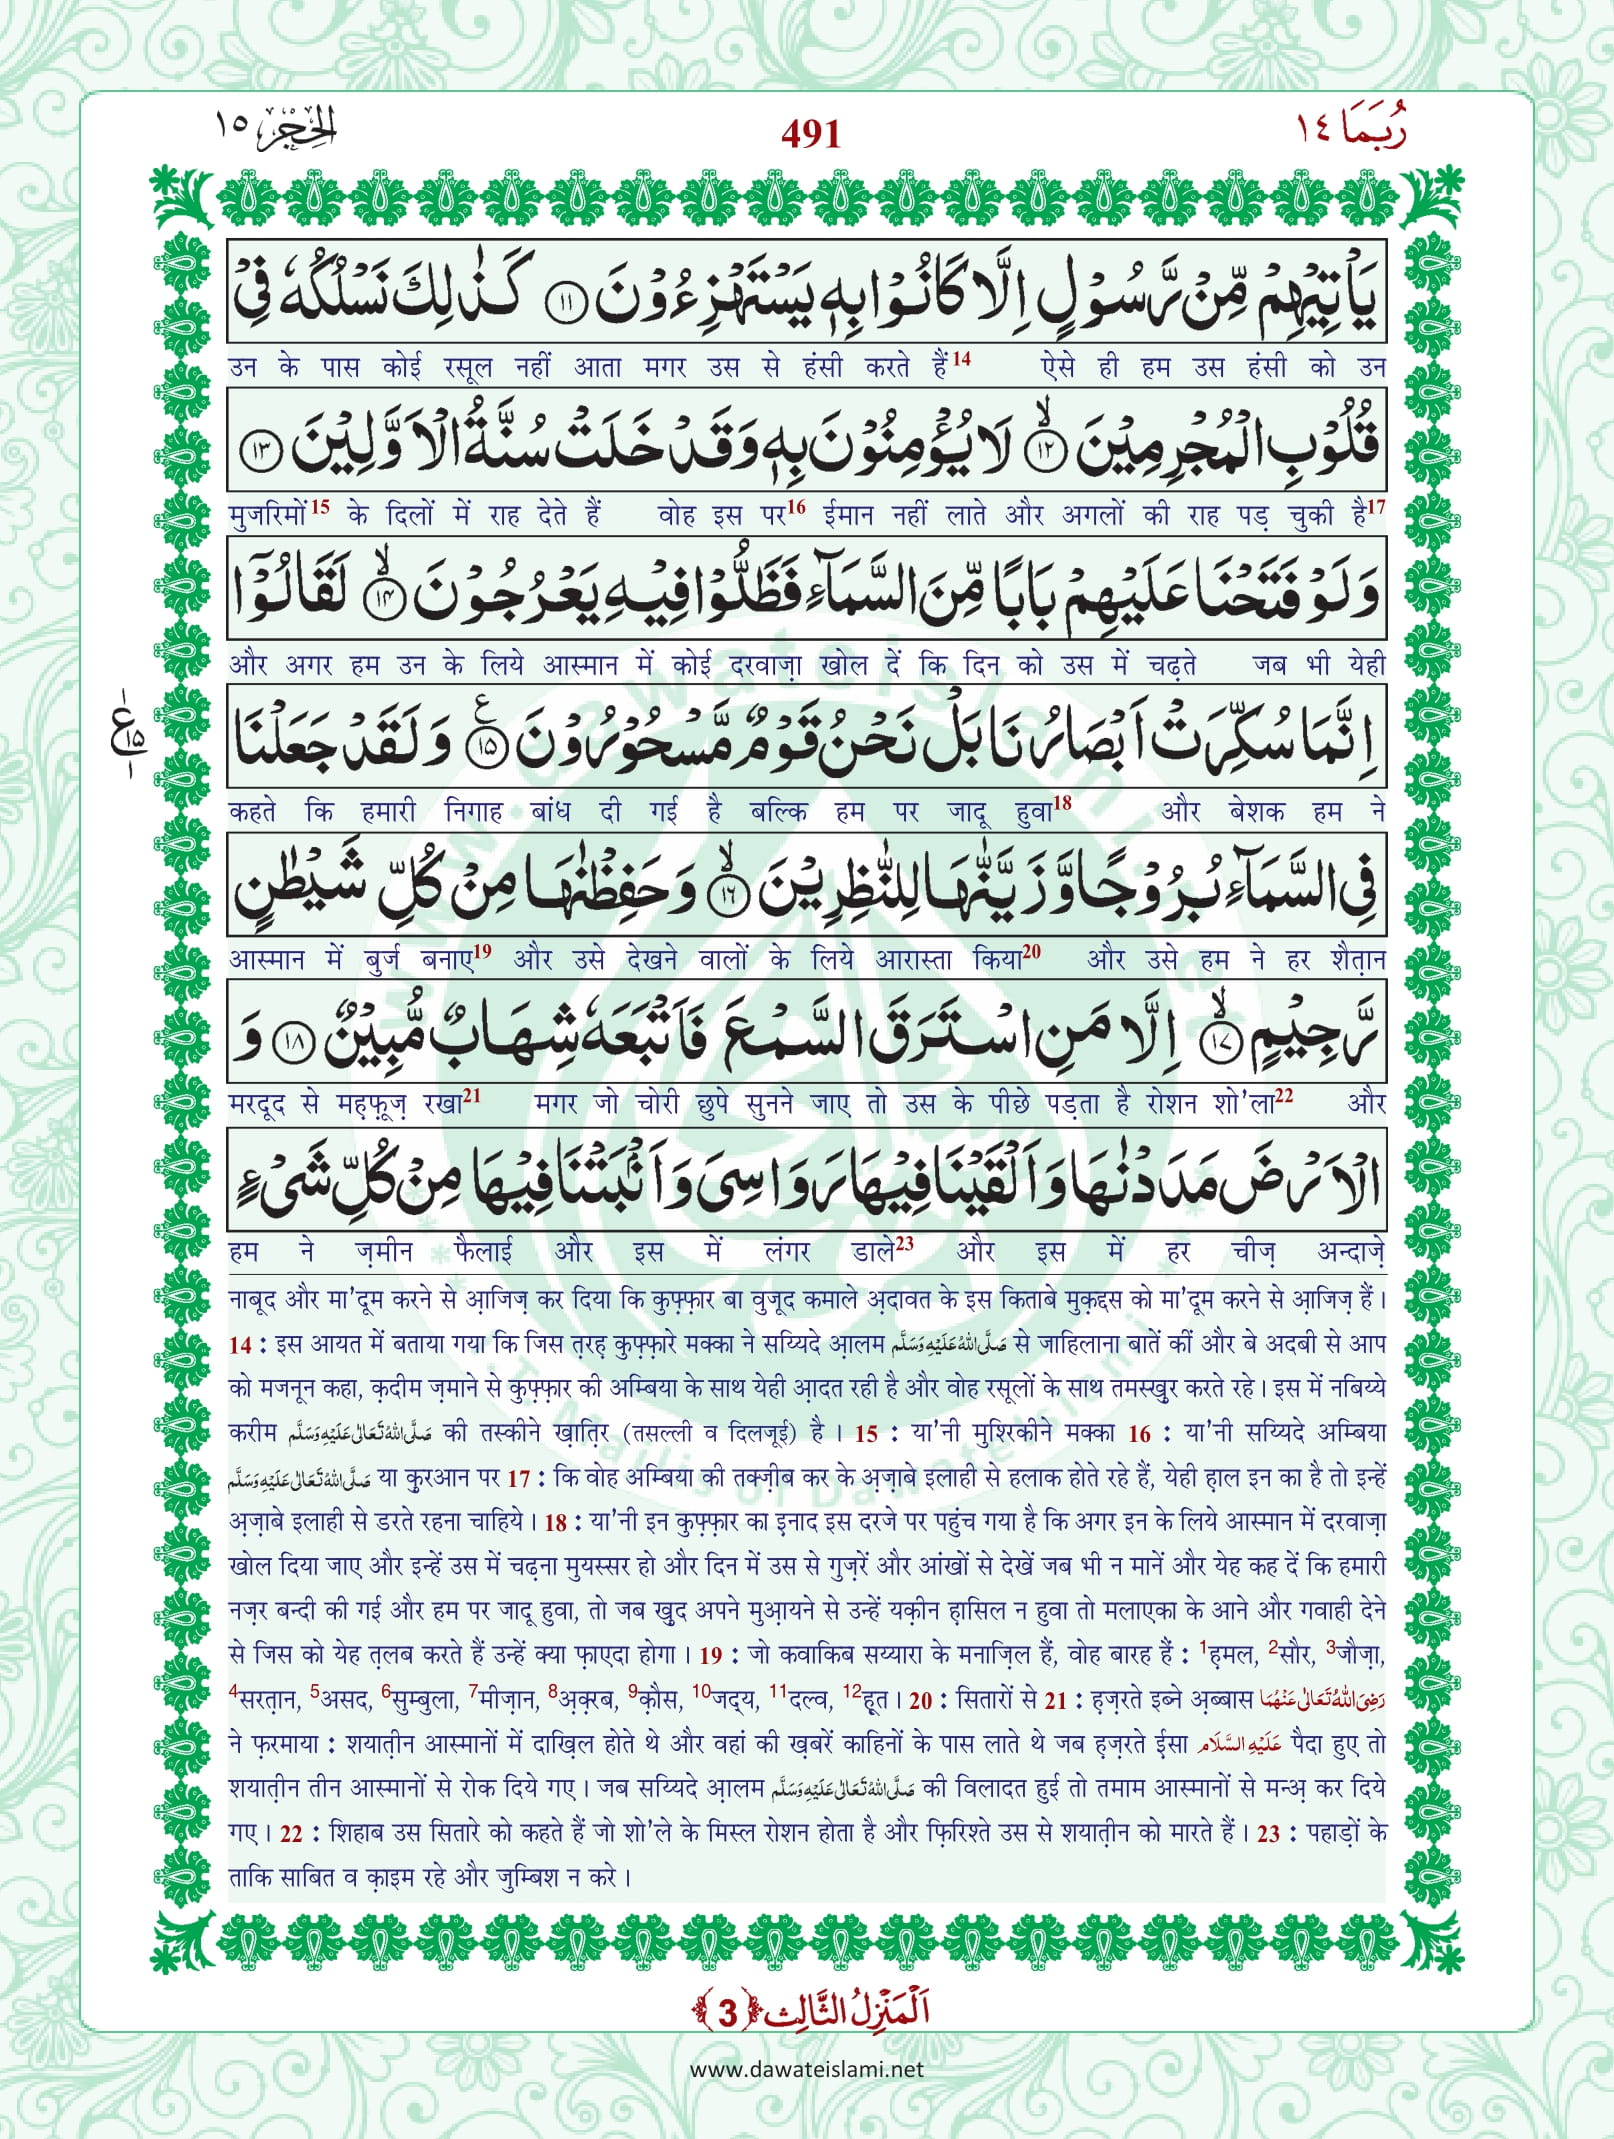 رُبَمَا ١٤
491
الحِجْر ١٥
يَاْتِيْهِمْ مِّنْ رَّسُوْلٍ اِلَّا كَانُوْا بِهٖ يَسْتَهْزِءُوْنَ ﴿۱۱﴾ كَذٰلِكَ نَسْلُكُهٗ فِیْ
उन के पास कोई रसूल नहीं आता मगर उस से हंसी करते हैं14 ऐसे ही हम उस हंसी को उन
قُلُوْبِ الْمُجْرِمِیْنَ ﴿ۙ۱۲﴾ لَا یُؤْمِنُوْنَ بِهٖ وَقَدْ خَلَتْ سُنَّةُ الْاَوَّلِیْنَ ﴿۱۳﴾
मुजरिमों15 के दिलों में राह देते हैं वोह इस पर16 ईमान नहीं लाते और अगलों की राह पड़ चुकी है17
وَلَوْ فَتَحْنَا عَلَیْهِمْ بَابًا مِّنَ السَّمَآءِ فَظَلُّوْا فِیْهِ یَعْرُجُوْنَ ﴿ۙ۱۴﴾ لَقَالُوْۤا
और अगर हम उन के लिये आस्मान में कोई दरवाज़ा खोल दें कि दिन को उस में चढ़ते जब भी येही
اِنَّمَا سُكِّرَتْ اَبْصَارُنَا بَلْ نَحْنُ قَوْمٌ مَّسْحُوْرُوْنَ ﴿۱۵﴾ع وَلَقَدْ جَعَلْنَا
ع ۱ ۱۵ ۱
कहते कि हमारी निगाह बांध दी गई है बल्कि हम पर जादू हुवा18 और बेशक हम ने
فِی السَّمَآءِ بُرُوْجًا وَّ زَیَّنّٰهَا لِلنّٰظِرِیْنَ ﴿ۙ۱۶﴾ وَحَفِظْنٰهَا مِنْ كُلِّ شَیْطٰنٍ
आस्मान में बुर्ज बनाए19 और उसे देखने वालों के लिये आरास्ता किया20 और उसे हम ने हर शैत़ान
رَّجِیْمٍ ﴿ۙ۱۷﴾ اِلَّا مَنِ اسْتَرَقَ السَّمْعَ فَاَتْبَعَهٗ شِهَابٌ مُّبِیْنٌ ﴿۱۸﴾ وَ
मरदूद से मह़फ़ूज़ रखा21 मगर जो चोरी छुपे सुनने जाए तो उस के पीछे पड़ता है रोशन शो'ला22 और
الْاَرْضَ مَدَدْنٰهَا وَاَلْقَیْنَا فِیْهَا رَوَاسِیَ وَاَنْۢبَتْنَا فِیْهَا مِنْ كُلِّ شَیْءٍ
हम ने ज़मीन फैलाई और इस में लंगर डाले23 और इस में हर चीज़ अन्दाज़े
नाबूद और मा'दूम करने से आ़जिज़ कर दिया कि कुफ़्फ़ार बा वुजूद कमाले अ़दावत के इस किताबे मुक़द्दस को मा'दूम करने से आ़जिज़ हैं।
14 : इस आयत में बताया गया कि जिस त़रह़ कुफ़्फ़ारे मक्का ने सय्यिदे आ़लम صَلَّى اللّٰهُ عَلَيْهِ وَسَلَّم से जाहिलाना बातें कीं और बे अदबी से आप
को मजनून कहा, क़दीम ज़माने से कुफ़्फ़ार की अम्बिया के साथ येही आ़दत रही है और वोह रसूलों के साथ तमस्ख़ुर करते रहे। इस में नबिय्ये
करीम صَلَّى اللّٰهُ تَعَالٰى عَلَيْهِ وَسَلَّم की तस्कीने ख़ात़िर (तसल्ली व दिलजूई) है। 15 : या'नी मुश्रिकीने मक्का 16 : या'नी सय्यिदे अम्बिया
صَلَّى اللّٰهُ تَعَالٰى عَلَيْهِ وَسَلَّم या क़ुरआन पर 17 : कि वोह अम्बिया की तक्ज़ीब कर के अ़ज़ाबे इलाही से हलाक होते रहे हैं, येही ह़ाल इन का है तो इन्हें
अ़ज़ाबे इलाही से डरते रहना चाहिये। 18 : या'नी इन कुफ़्फ़ार का इनाद इस दरजे पर पहुंच गया है कि अगर इन के लिये आस्मान में दरवाज़ा
खोल दिया जाए और इन्हें उस में चढ़ना मुयस्सर हो और दिन में उस से गुज़रें और आंखों से देखें जब भी न मानें और येह कह दें कि हमारी
नज़र बन्दी की गई और हम पर जादू हुवा, तो जब ख़ुद अपने मुआ़यने से उन्हें यक़ीन ह़ासिल न हुवा तो मलाएका के आने और गवाही देने
से जिस को येह त़लब करते हैं उन्हें क्या फ़ाएदा होगा। 19 : जो कवाकिब सय्यारा के मनाज़िल हैं, वोह बारह हैं : 1ह़मल, 2सौर, 3जौज़ा,
4सरत़ान, 5असद, 6सुम्बुला, 7मीज़ान, 8अ़क़्रब, 9क़ौस, 10जद्य, 11दल्व, 12ह़ूत। 20 : सितारों से 21 : ह़ज़रते इब्ने अ़ब्बास رَضِیَ اللّٰهُ تَعَالٰى عَنْهُمَا
ने फ़रमाया : शयात़ीन आस्मानों में दाख़िल होते थे और वहां की ख़बरें काहिनों के पास लाते थे जब ह़ज़रते ईसा عَلَيْهِ السَّلَام पैदा हुए तो
शयात़ीन तीन आस्मानों से रोक दिये गए। जब सय्यिदे आ़लम صَلَّى اللّٰهُ تَعَالٰى عَلَيْهِ وَسَلَّم की विलादत हुई तो तमाम आस्मानों से मन्अ़ कर दिये
गए। 22 : शिहाब उस सितारे को कहते हैं जो शो'ले के मिस्ल रोशन होता है और फ़िरिश्ते उस से शयात़ीन को मारते हैं। 23 : पहाड़ों के
ताकि साबित व क़ाइम रहे और जुम्बिश न करे।
اَلْمَنْزِلُ الثَّالِث ﴿3﴾
www.dawateislami.net